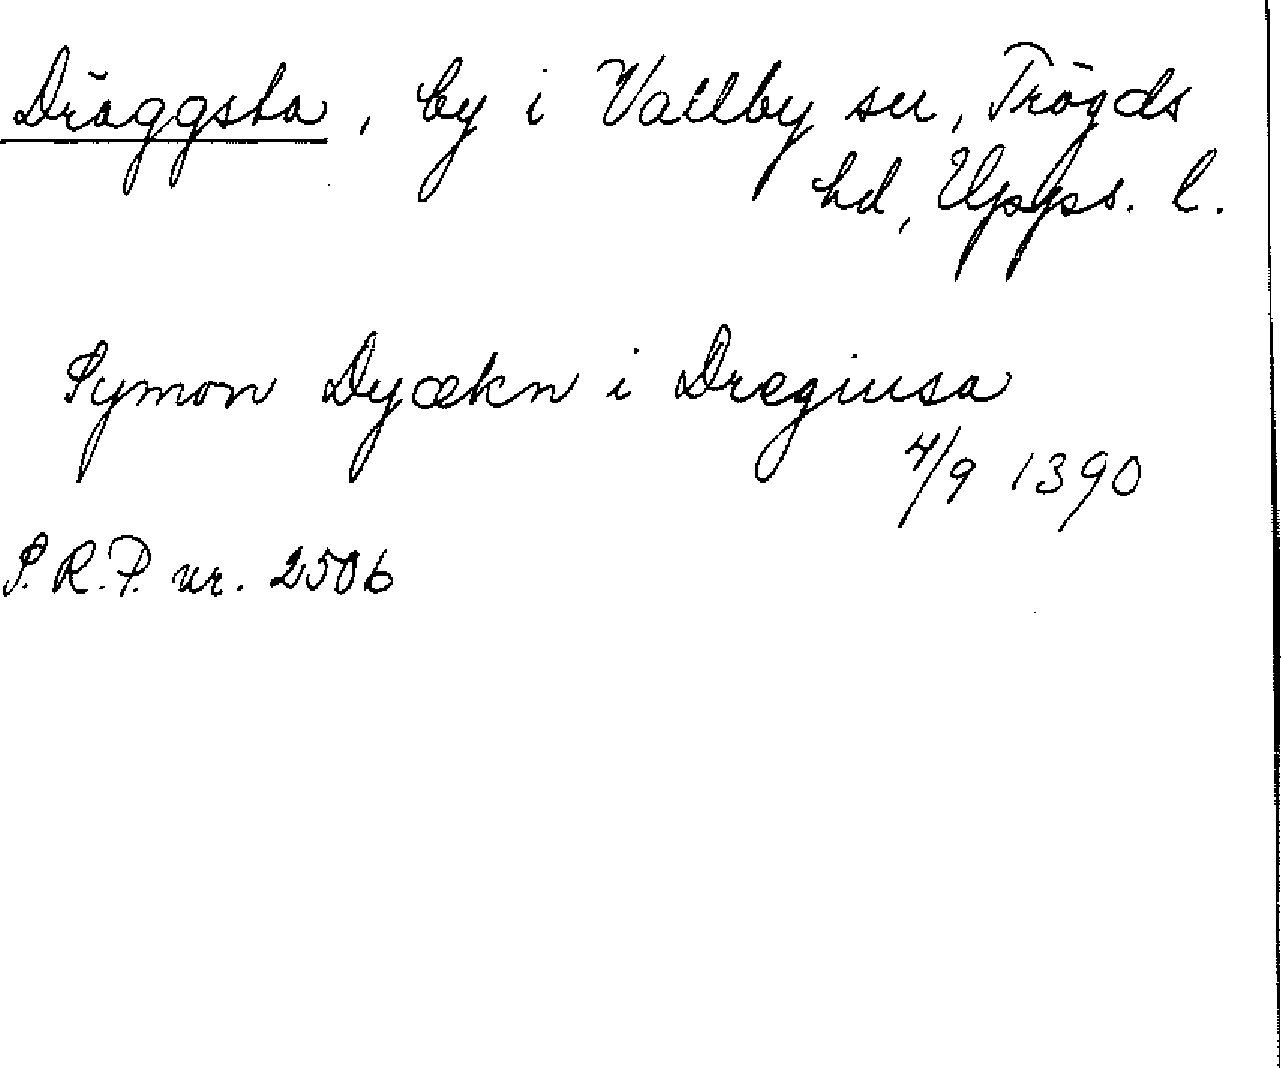 Dräggsta, by i Vallby sn, Trögds
hd, Upps. l.
Symon Dyækn i Dræginsa
4/9 1390
S.R.P. nr. 2506